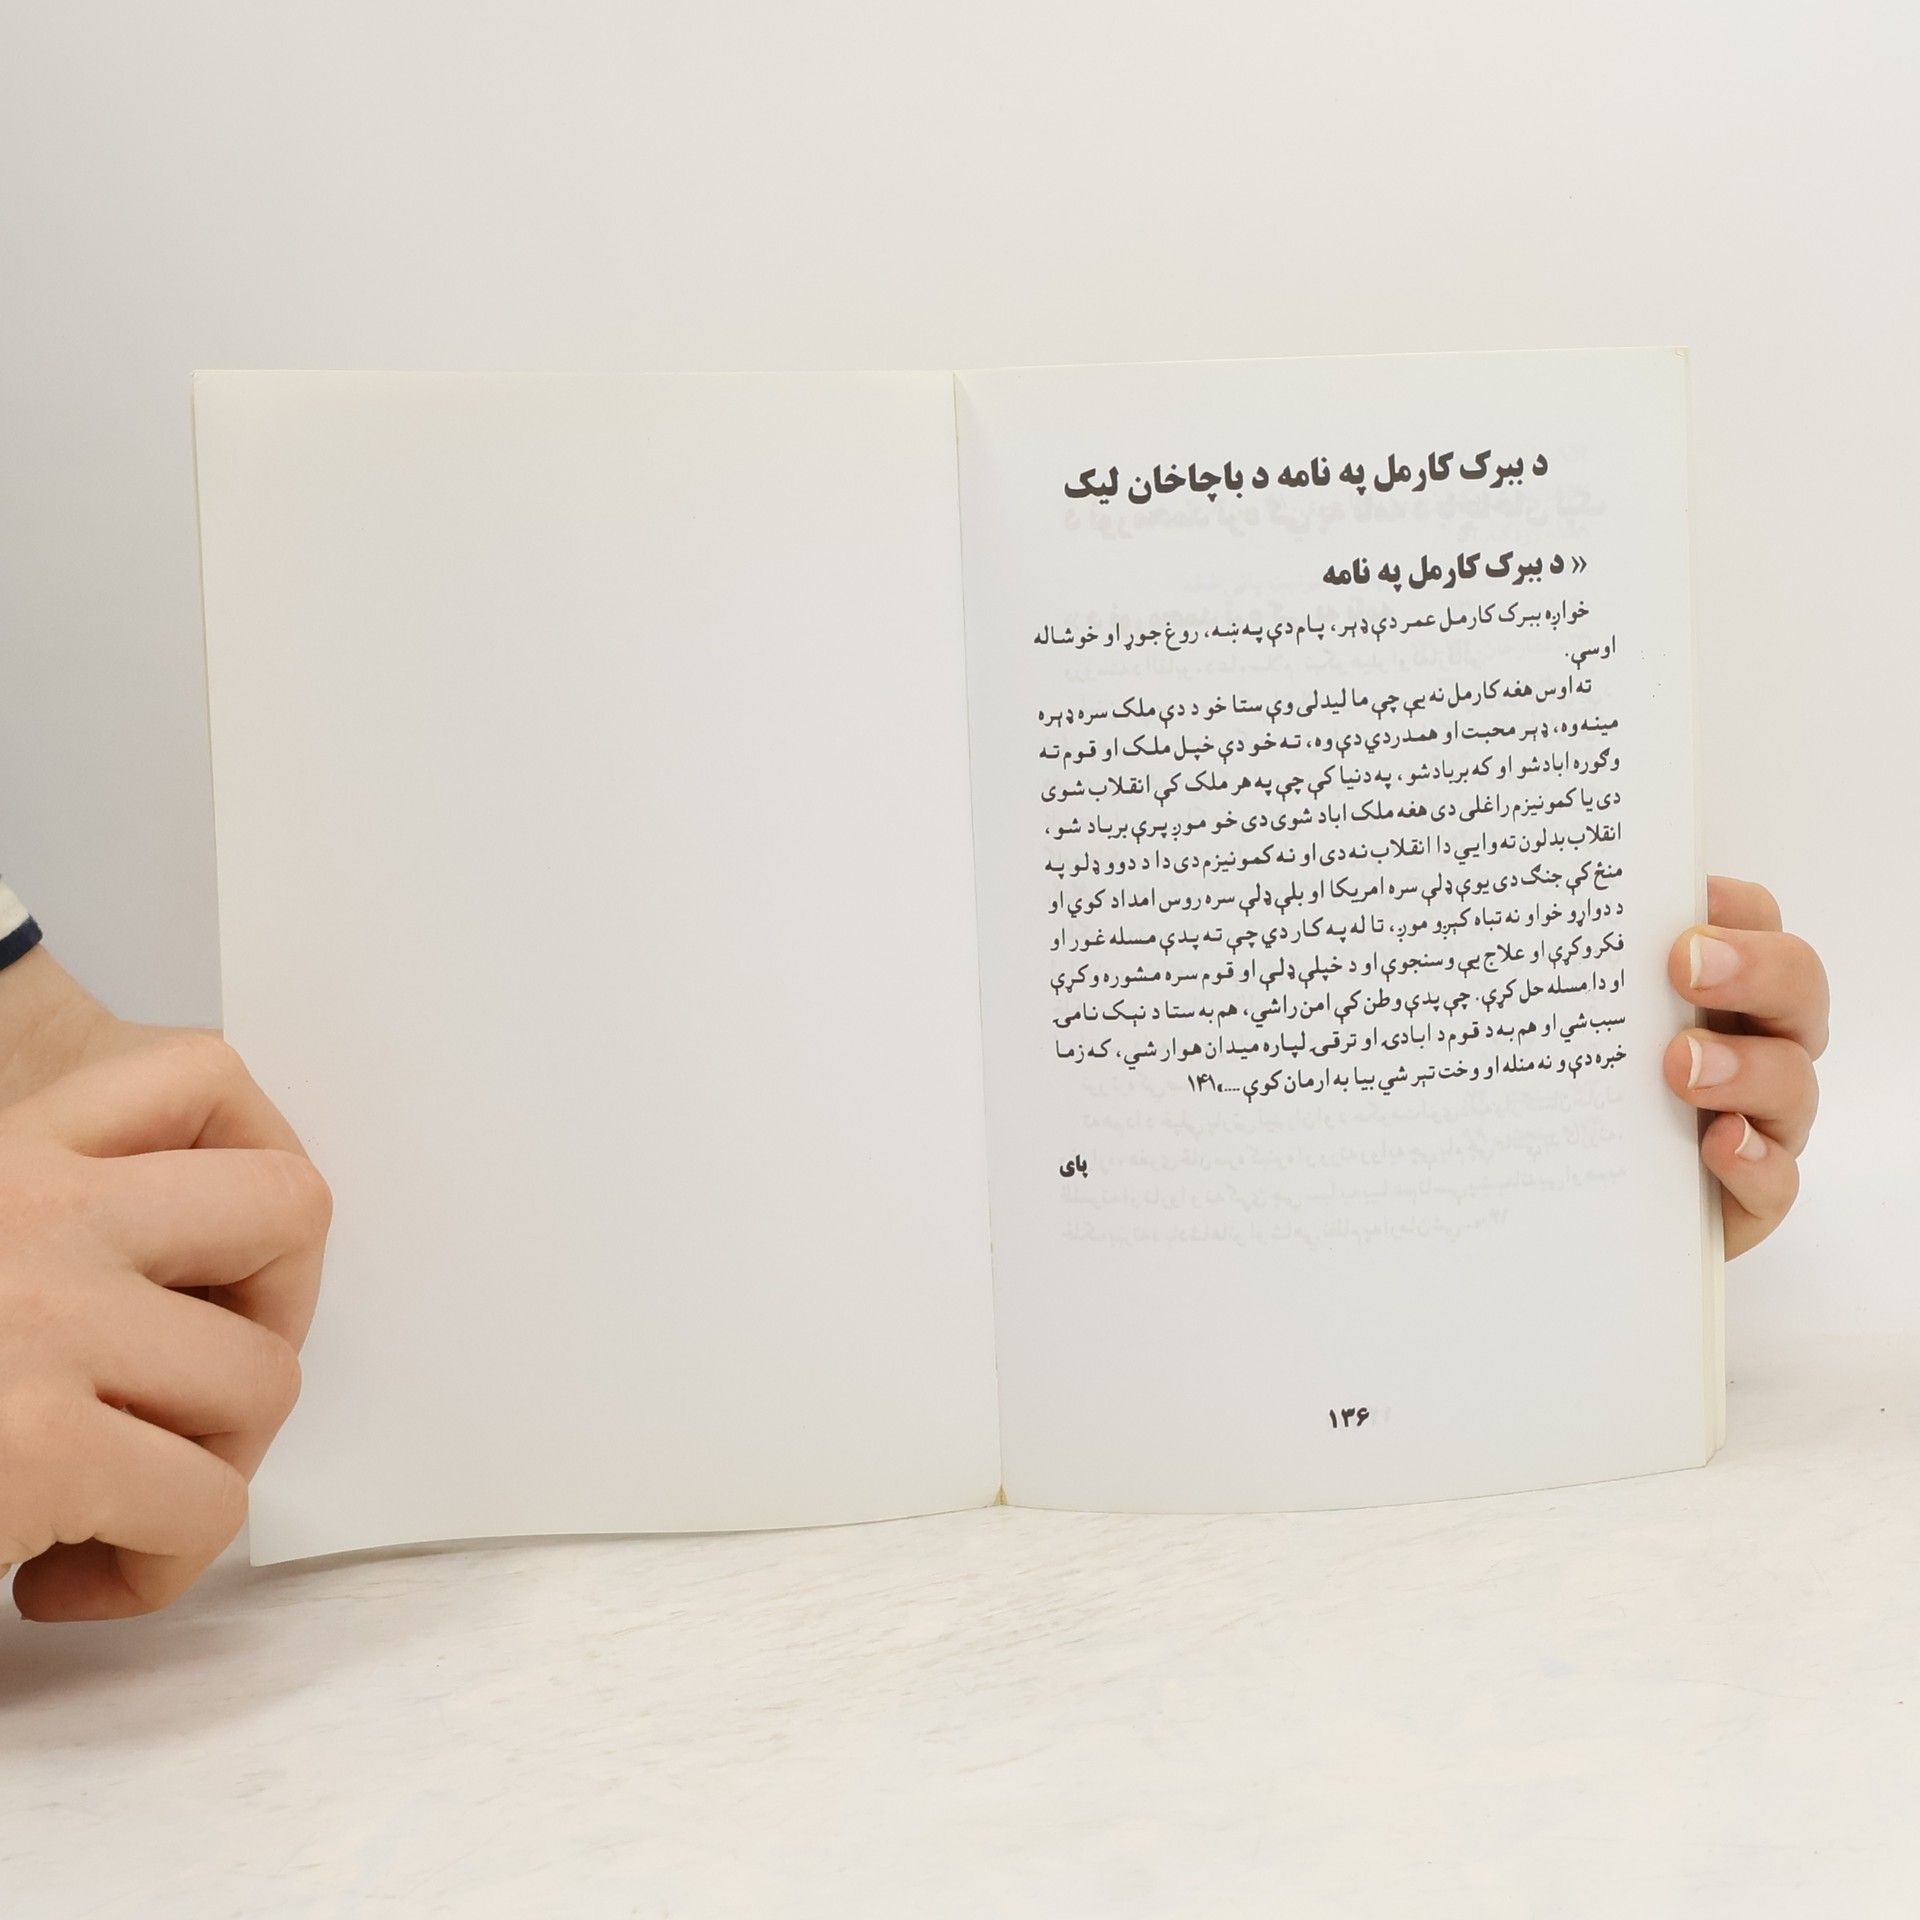 د ببرک کارمل په نامه د باچاخان لیک
« د ببرک کارمل په نامه
خواږه ببرک کارمل عمر دې ډېر، پام دې په ښه، روغ جوړ او خوشاله
اوسې.
ته اوس هغه کارمل نه يې چې ما ليدلی وې ستا خو د دې ملک سره ډېره
مينه وه، ډېر محبت او همدردي دې وه، ته خو دې خپل ملک او قوم ته
وګوره اباد شو او که برباد شو، په دنيا کې چې په هر ملک کې انقلاب شوی
دی يا کمونيزم راغلی دی هغه ملک اباد شوی دی خو موږ پرې برباد شو،
انقلاب بدلون ته وايي دا انقلاب نه دی او نه کمونيزم دی دا د دوو ډلو په
منځ کې جنګ دی يوې ډلې سره امريکا او بلې ډلې سره روس امداد کوي او
د دواړو خواو نه تباه کېږو موږ، تا له په کار دي چې ته پدې مسله غور او
فکر وکړې او علاج يې وسنجوې او د خپلې ډلې او قوم سره مشوره وکړې
او دا مسله حل کړې. چې پدې وطن کې امن راشي، هم به ستا د نېک نامۍ
سبب شي او هم به د قوم د ابادۍ او ترقۍ لپاره ميدان هوار شي، که زما
خبره دې و نه منله او وخت تېر شي بيا به ارمان کوې ....»۱۴۱
پای
۱۳۶